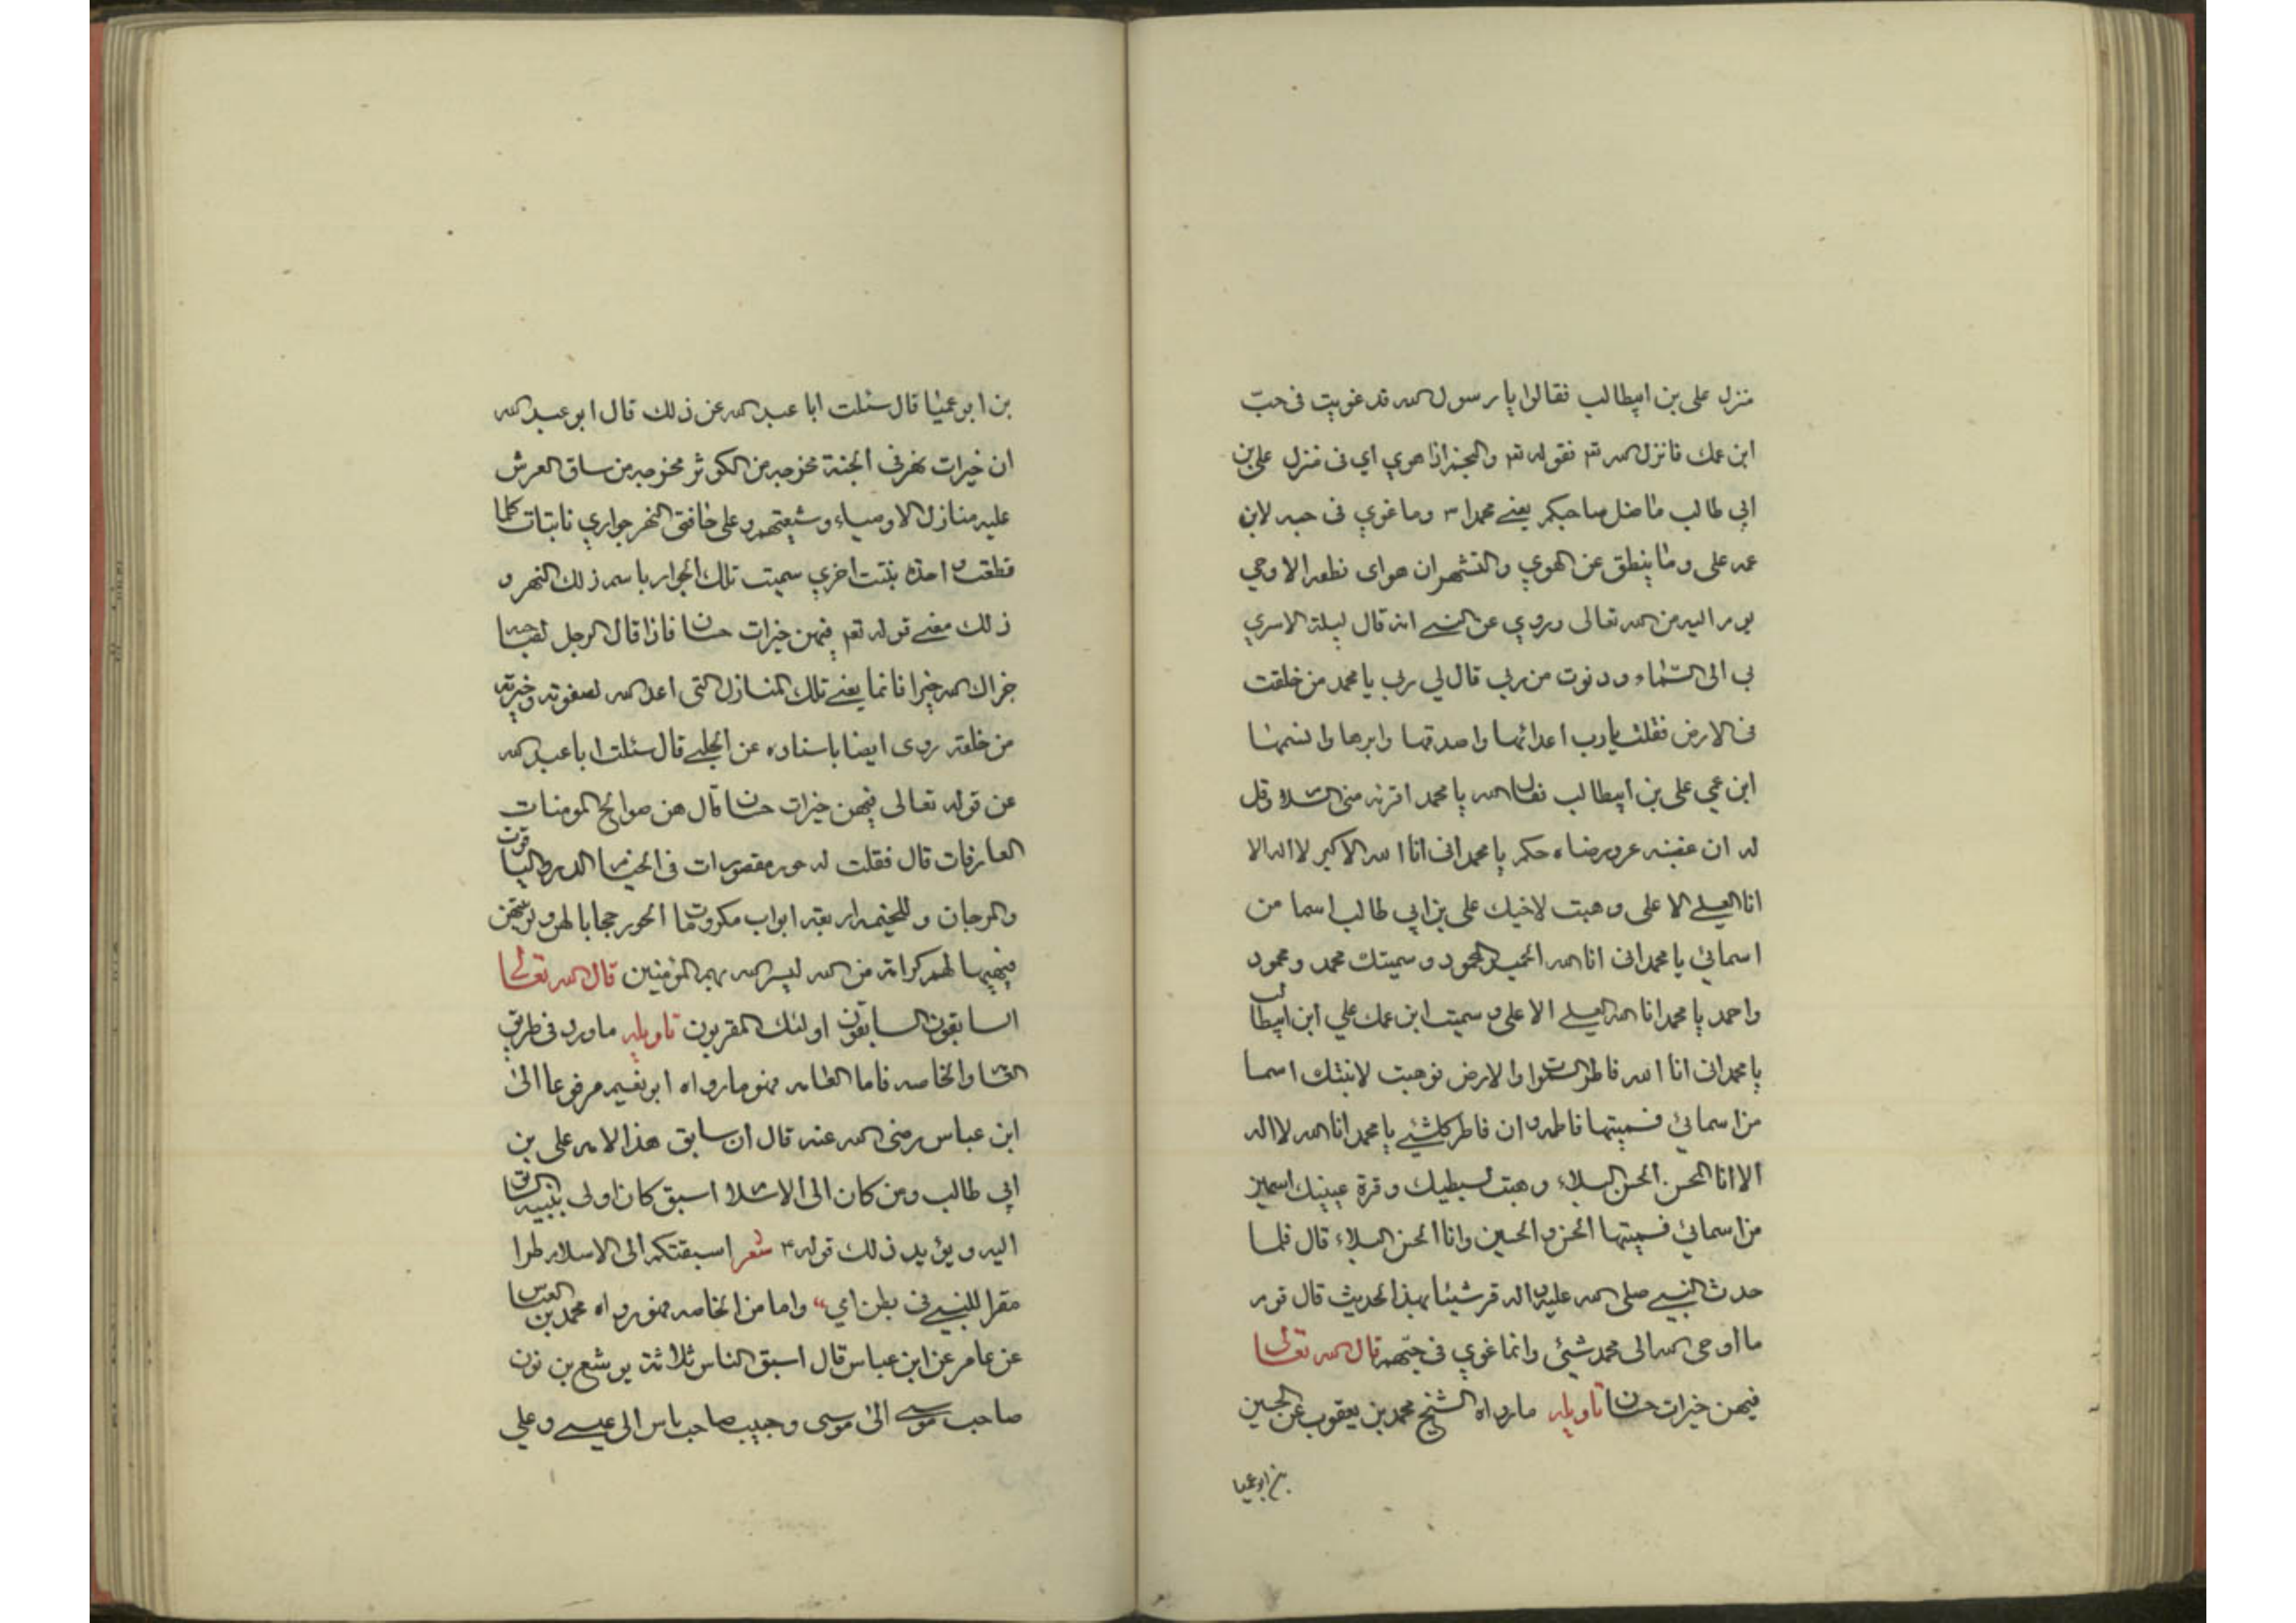 منزل علی بن ابیطالب فقالوا یا رسول الله قد غویت فی حبّ
ابن عمك فانزل الله تع بقوله تع والنجم اذا هوی ای فی منزل علی بن
ابی طالب ما ضل صاحبکم یعنے محمدا ۳ وما غوی فی حبه لابن
عمه علی وما ینطق عن الهوی والتشهر ان هوای نطقه الا وحی
یوم الیه من الله تعالی وروی عن النبے انه قال لیلة الاسری
بی الی السماء ودنوت من ربی قال لی ربی یا محمد من خلقت
فی الارض فقلت یارب اعدائها واصدقها وابرها
ابن عمی علی بن ابیطالب فقال الله یا محمد اقرئه منی السلام وقل
له ان غضبه عز ورضاه حکم یا محمد انی انا الله الاکبر لا اله الا
انا العلے الاعلی وهبت لاخیك علی بن ابی طالب اسما من
اسمائی یا محمد انی انا الله الحمید المحمود وسمیتك محمد ومحمود
واحمد یا محمد انا الله العلے الاعلی وسمیت ابن عمك علی ابن ابیطالب
یا محمد انی انا الله فاطر السموات والارض فوهبت لابنتك اسما
من اسمائی فسمیتها فاطمه وان فاطر کلشئے یا محمد انا الله لا اله
الا انا المحسن الحسن البلاء وهبت لسبطیك وقرة عینیك اسمین
من اسمائی فسمیتها الحسن والحسین وانا الحسن البلاء قال فلما
حدث النبے صلی الله علیه واله قرشیا بهذا الحدیث قال قوم
ما اوحی الله الی محمد شئی وانما غوی فی حبّهم قال الله تعالی
فیهن خیرات حسان تاویله ما رواه الشیخ محمد بن یعقوب عن الحسین
بن ابو عمیا
بن ابو عمیا قال سئلت ابا عبد الله عن ذلك قال ابو عبد الله
ان خیرات نهر فی الجنة مخرجه من الکوثر مخرجه من ساق العرش
علیه منازل الاوصیاء وشیعتهم وعلی حافتی النهر جواری نابتات کلما
قطعت واحدة بنتت اخری سمیت تلك الجوار باسم ذلك النهر و
ذلك معنے قوله تع فیهن خیرات حسان فاذا قال الرجل لصاحبه
جزاك الله خیرا فانما یعنے تلك المنازل التی اعد الله لصفوته وخیرته
من خلقه روی ایضا باسناده عن الحلبے قال سئلت ابا عبد الله
عن قوله تعالی فیهن خیرات حسان قال هن صوالح المومنات
العارفات قال فقلت له حور مقصورات فی الخیام الدر والیاقوت
والمرجان وللخیمه اربعة ابواب الحور حجابا لهن
لهم کرامة من الله لیسر الله بهم المؤمنین قال الله تعالی
السابقون السابقون اولئك المقربون تاویله ما ورد فی طریق
العامه والخاصه فاما العامه فهو ما رواه ابو نعیم مرفوعا الی
ابن عباس رضی الله عنه قال ان سابق هذا الامه علی بن
ابی طالب ومن کان الی الاسلام اسبق کان اولی بنبیه السابق
الیه ویؤید ذلك قوله ۳ شعر اسبقتکم الی الاسلام طرا
مقرا للنبے فی بطن امی واما من الخاصه فهو رواه محمد بن العباس
عن عامر عن ابن عباس قال اسبق الناس ثلاثة یوشع بن نون
صاحب موسے الی موسی وحبیب صاحب یاس الی عیسے وعلی